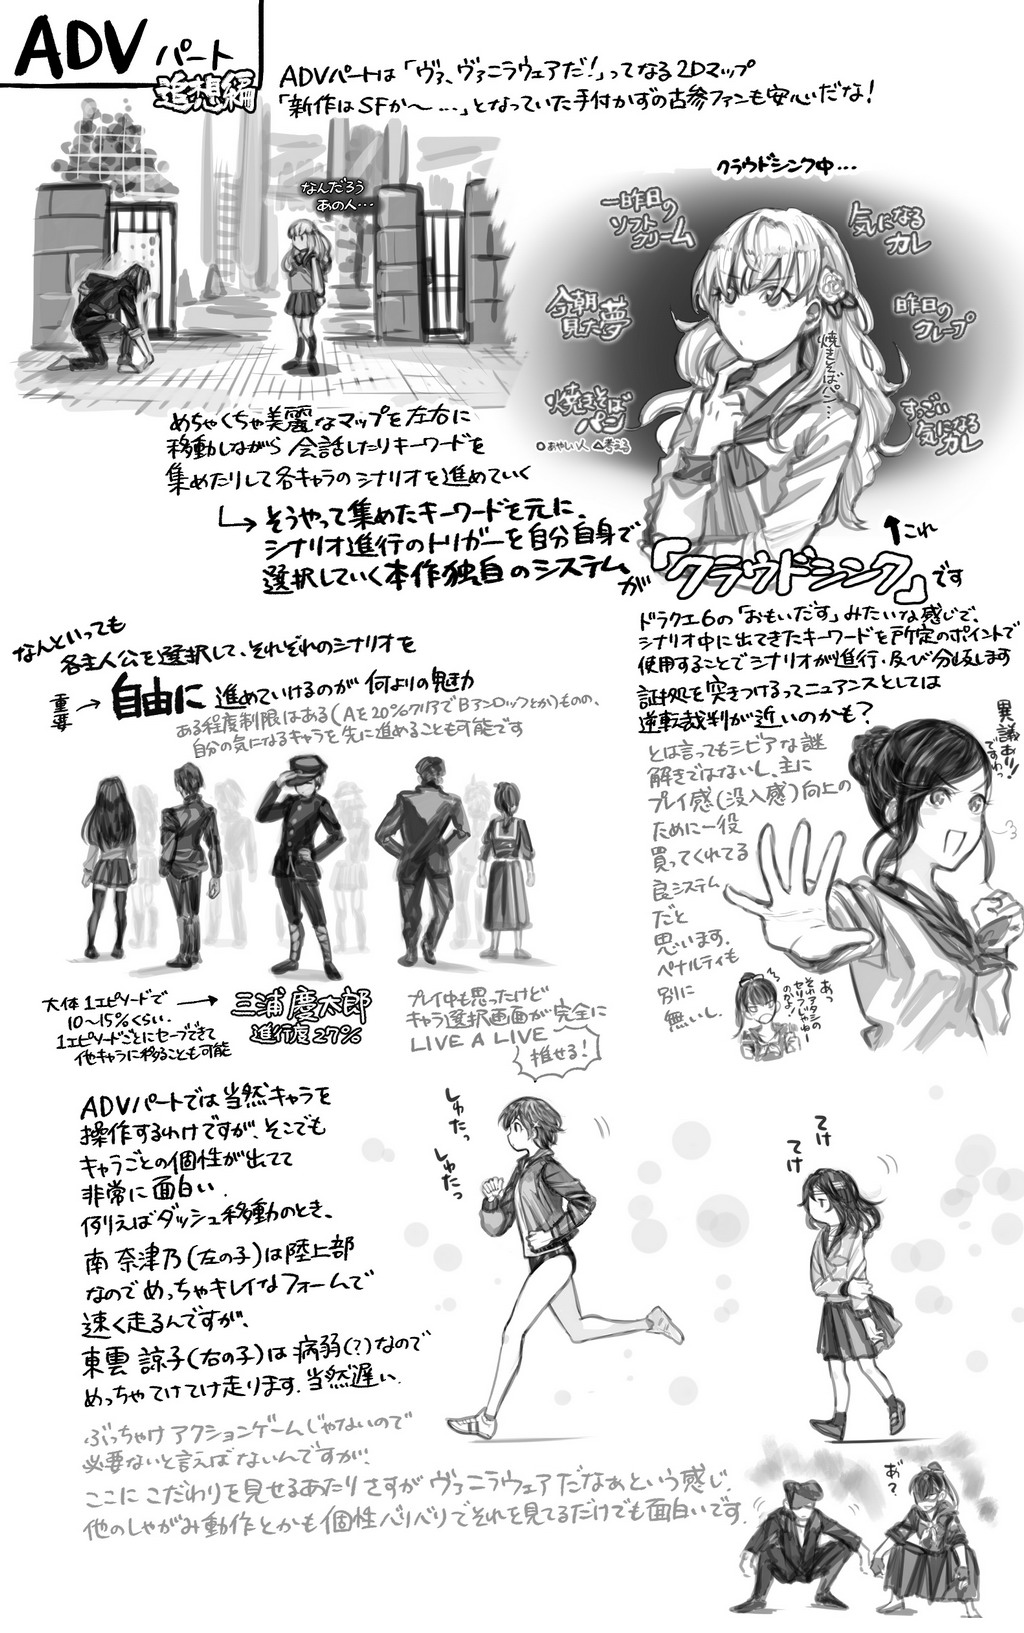 ADVパート
追想編
ADVパートは「ヴァ、ヴァニラウェアだ!」ってなる2Dマップ
「新作はSFか～…」となっていた手付かずの古参ファンも安心だな!
なんだろう
あの人…
クラウドシンク中…
一昨日の
ソフト
クリーム
気になる
カレ
今朝
見た夢
昨日の
クレープ
焼きそば
パン
すっごい
気になる
カレ
焼きそばパン…
○あやしい人 △考える
めちゃくちゃ美麗なマップを左右に
移動しながら 会話したりキーワードを
集めたりして各キャラのシナリオを進めていく
→そうやって集めたキーワードを元に、
シナリオ進行のトリガーを自分自身で
選択していく本作独自のシステムが「クラウドシンク」です
↑これ
ドラクエ6の「おもいだす」みたいな感じで、
シナリオ中に出てきたキーワードを所定のポイントで
使用することでシナリオが進行・及び分岐します
証拠を突きつけるってニュアンスとしては
逆転裁判が近いのかも?
とは言ってもシビアな謎
解きではないし、主に
プレイ感(没入感)向上の
ために一役
買ってくれてる
良システム
だと
思います.
ペナルティも
別に
無いし.
異議あり!
ですわっ
あっ
それアタシの
セリフじゃねー
のかよ!
なんといっても
各主人公を選択して、それぞれのシナリオを
重要→自由に 進めていけるのが 何よりの魅力
ある程度制限はある(Aを20%クリアでBアンロックとか)ものの、
自分の気になるキャラを先に進めることも可能です
大体1エピソードで
10～15%くらい.
1エピソードごとにセーブできて
他キャラに移ることも可能
→三浦 慶太郎
進行度27%
プレイ中も思ったけど
キャラ選択画面が完全に
LIVE A LIVE
推せる!
ADVパートでは当然キャラを
操作するわけですが、そこでも
キャラごとの個性が出てて
非常に面白い.
例えばダッシュ移動のとき、
南 奈津乃(左の子)は陸上部
なのでめっちゃキレイなフォームで
速く走るんですが、
東雲 諒子(右の子)は病弱(?)なので
めっちゃてけてけ走ります.当然遅い.
しゅたっ
しゅたっ
てけ
てけ
ぶっちゃけアクションゲームじゃないので
必要ないと言えばないんですが、
ここに こだわりを見せるあたりさすがヴァニラウェアだなぁという感じ.
他のしゃがみ動作とかも個性バリバリでそれを見てるだけでも面白いです.
あ゛?